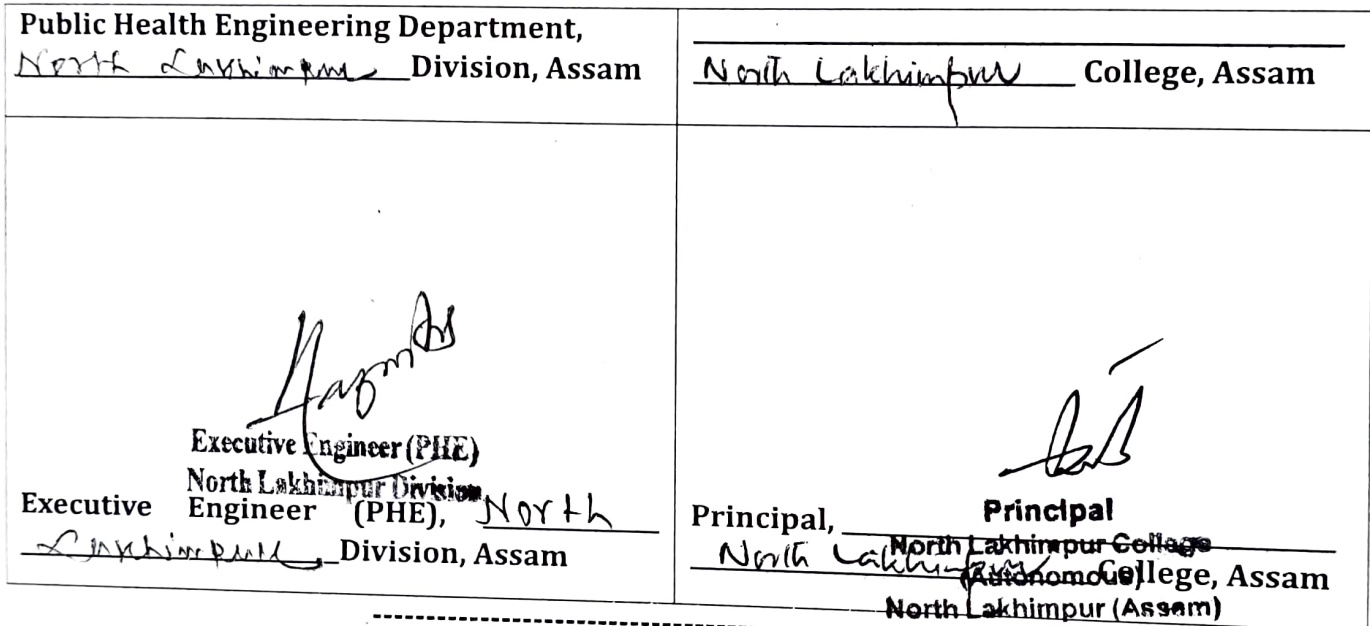 Public Health Engineering Department,
North Lakhimpur Division, Assam
North Lakhimpur College, Assam
Executive Engineer (PHE)
North Lakhimpur Division
Executive Engineer (PHE), North
Lakhimpur, Division, Assam
Principal,
Principal
North Lakhimpur College
(Autonomous)
North Lakhimpur (Assam)
North Lakhimpur College, Assam